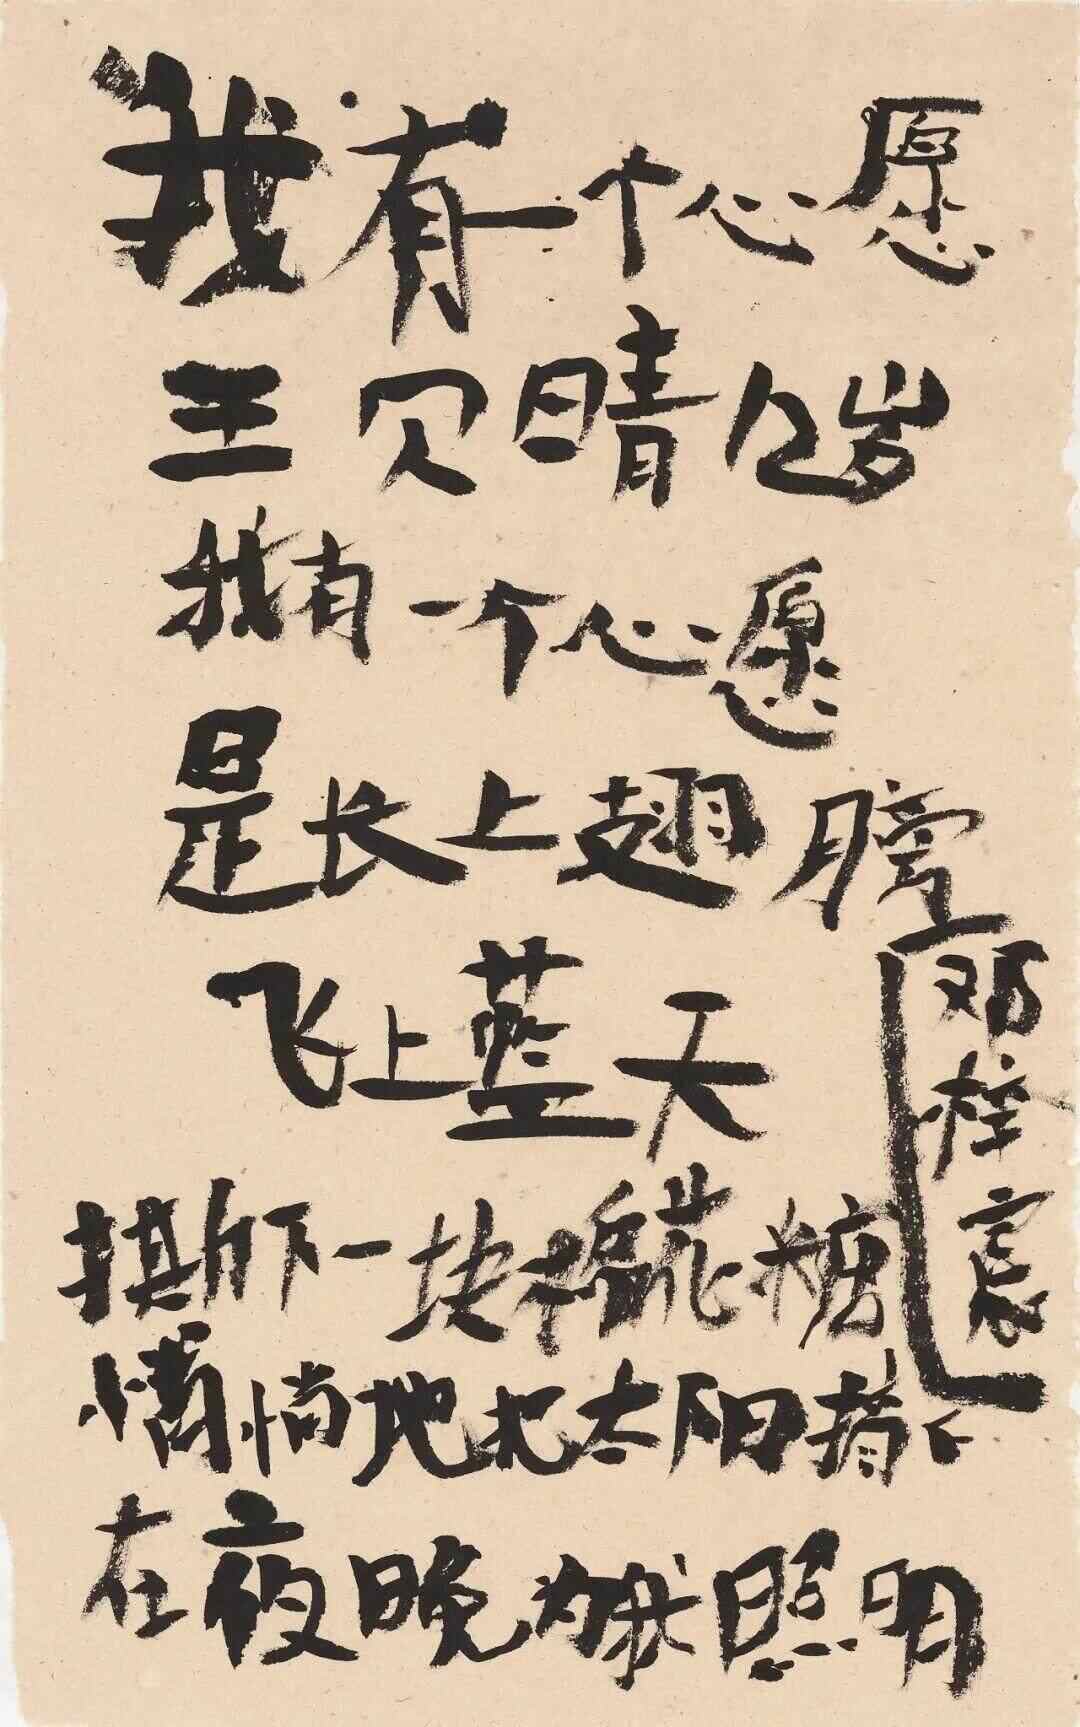 我有一个心愿
王贝晴 岁
我有一个心愿
是长上翅膀
飞上蓝天
撕下一块棉花糖
悄悄地把太阳
在夜晚为我照明
邓梓宸